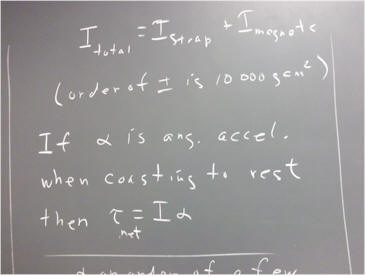 I total = I strap + I magnets
(order of I is 10 000 g cm²)
If α is ang. accel.
when coasting to rest
then τ net = I α
of a few